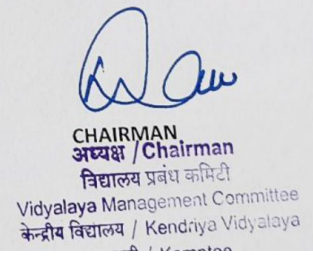 CHAIRMAN
अध्यक्ष / Chairman
विद्यालय प्रबंध कमिटी
Vidyalaya Management Committee
केन्द्रीय विद्यालय / Kendriya Vidyalaya